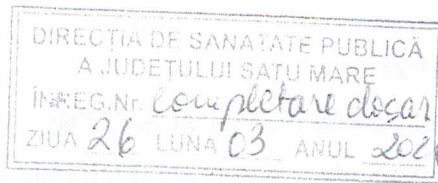 DIRECȚIA DE SANATATE PUBLICĂ
A JUDEȚULUI SATU MARE
ÎNREG.Nr. completare dosar
ZIUA 26 LUNA 03 ANUL